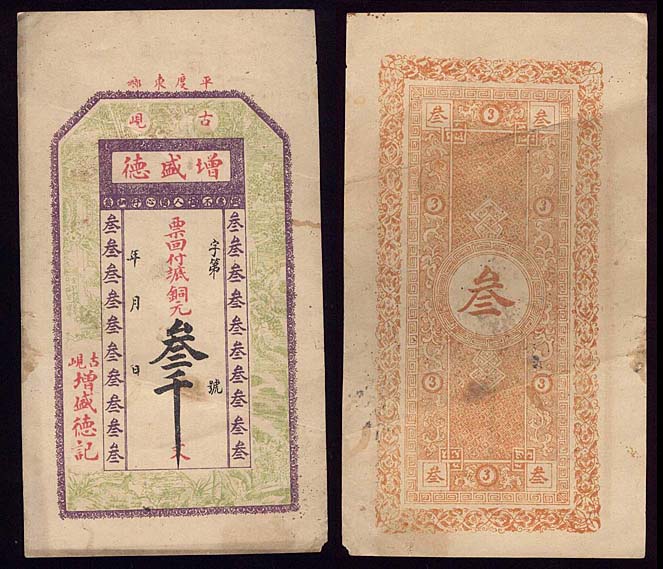 平度東鄉
古峴
增盛德
字第
號
票回付㡳銅元
叁千
文
年月日
叁叁叁叁叁叁叁叁叁叁
叁叁叁叁叁叁叁叁叁叁
古峴
增盛德記
叁 3 叁
3 3
叁
3 3
叁 3 叁